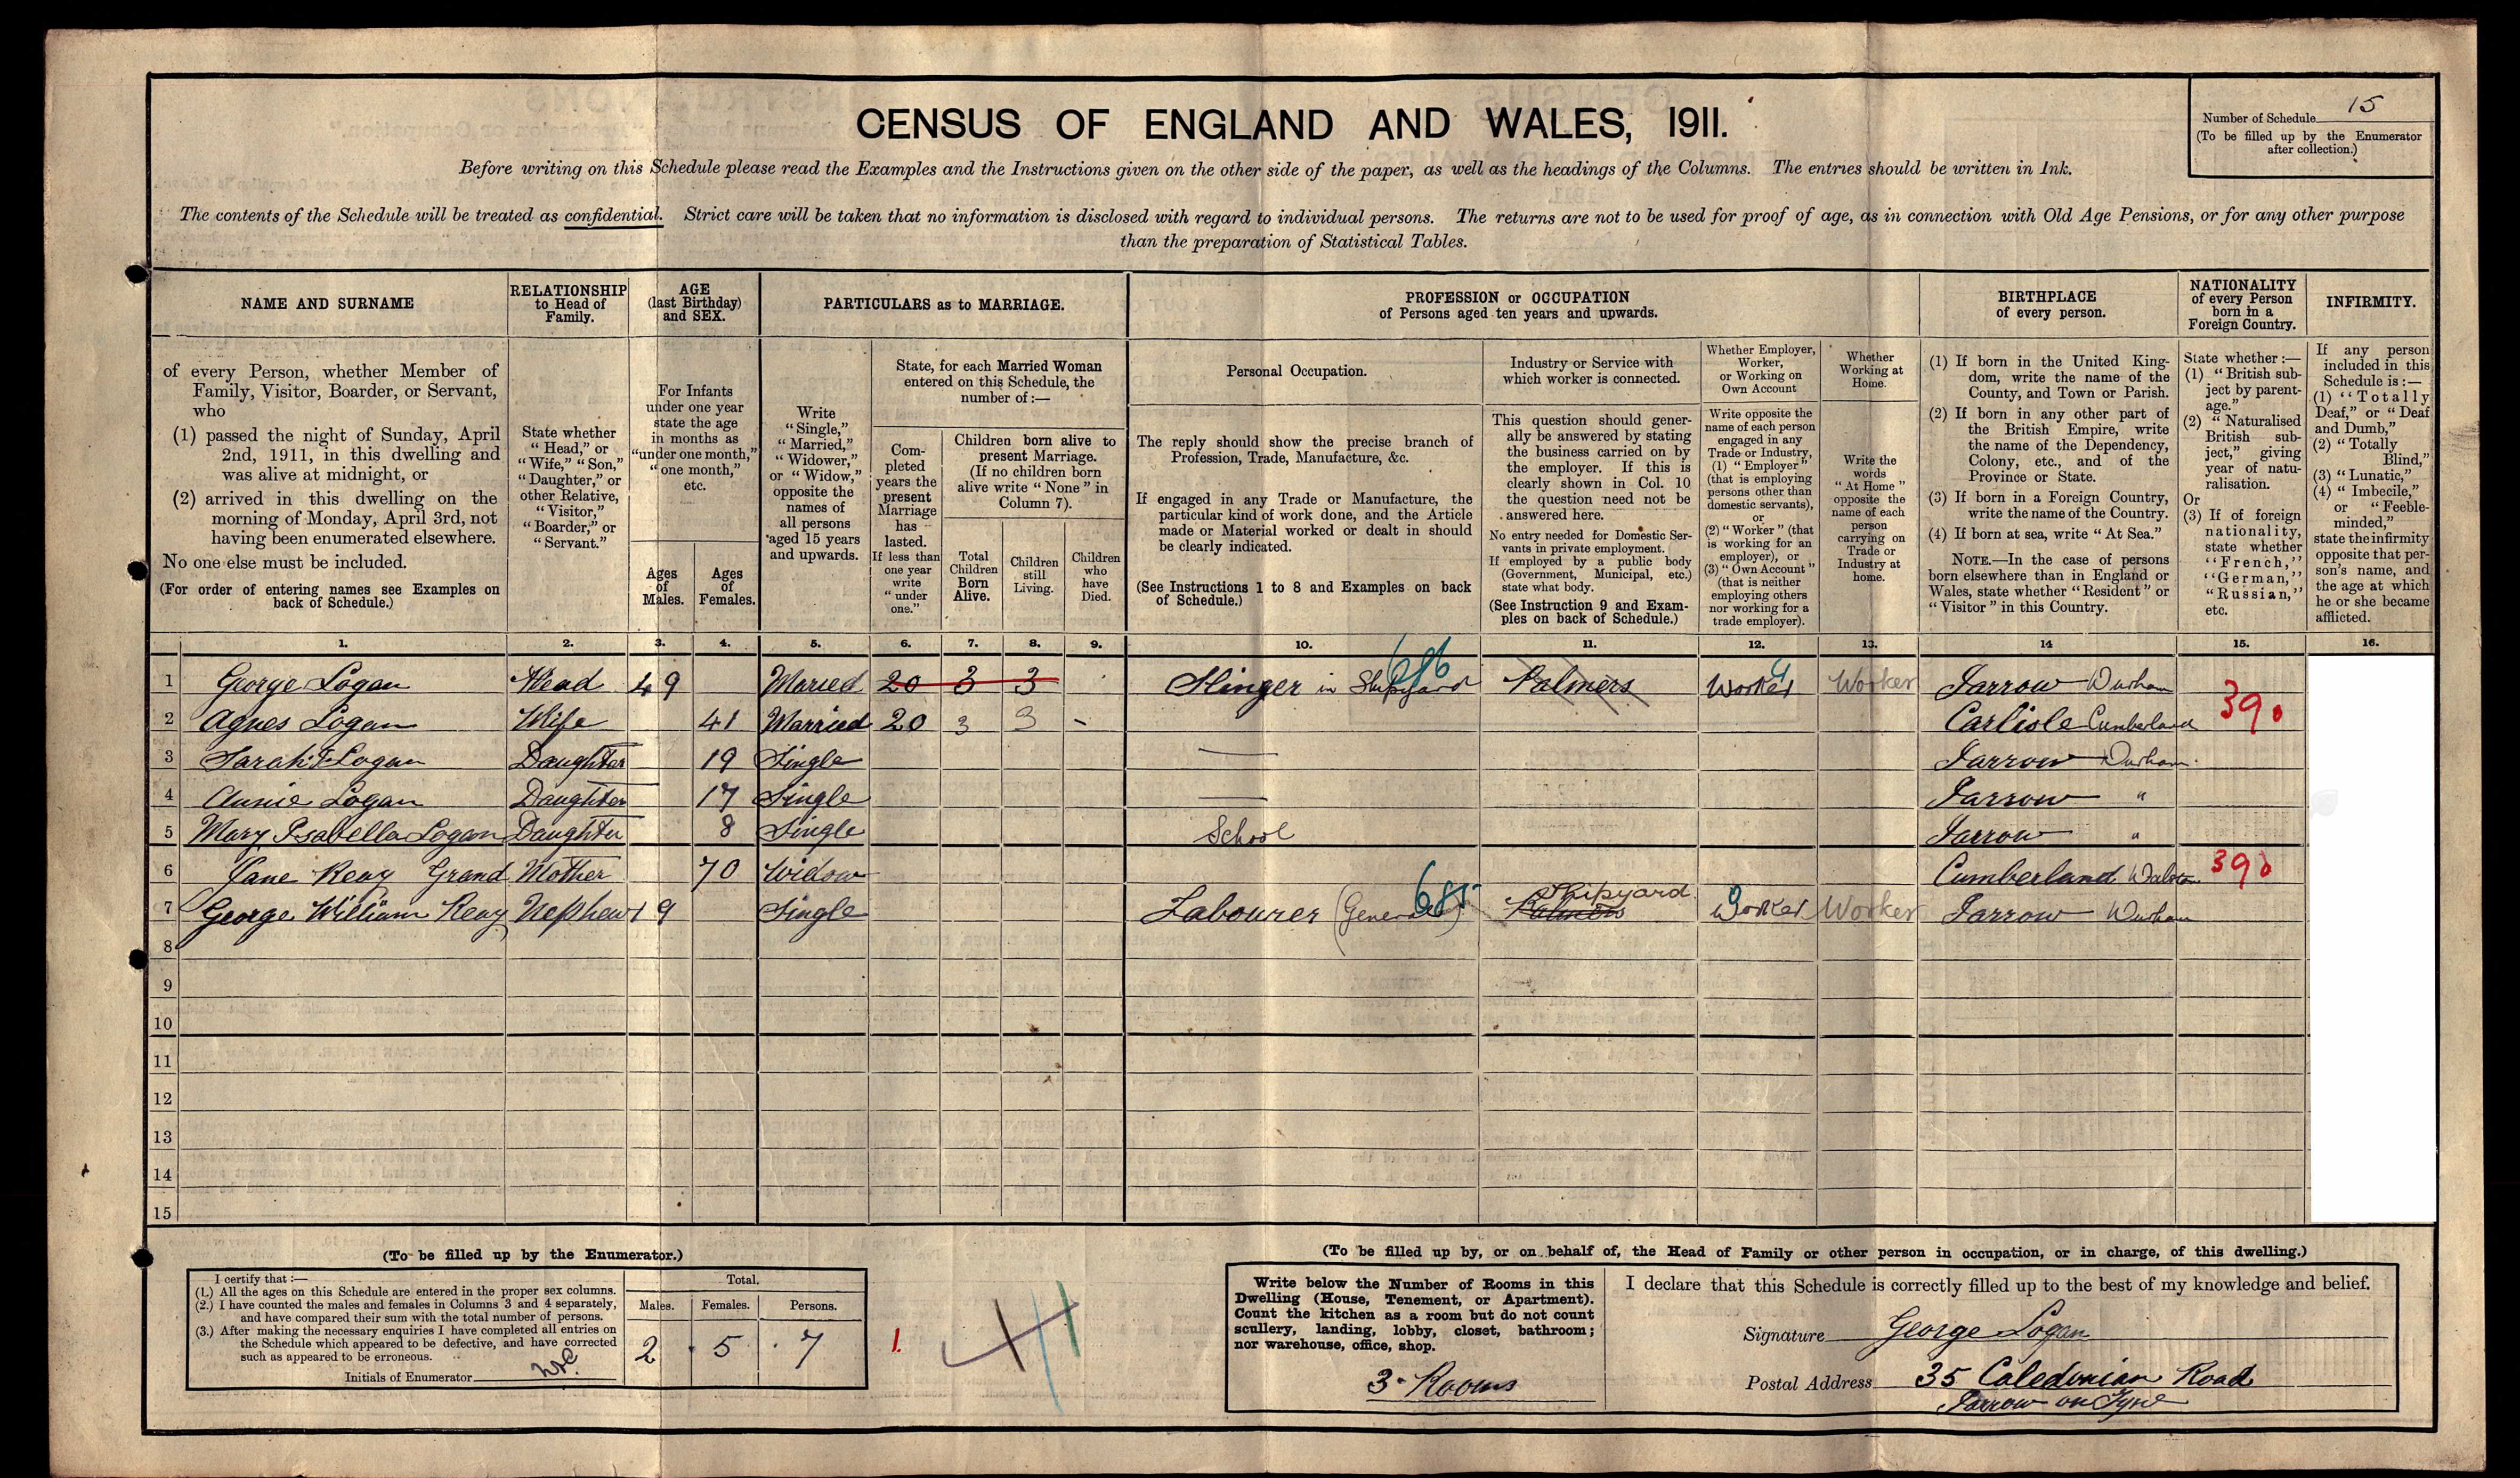 CENSUS OF ENGLAND AND WALES, 1911.
Number of Schedule 15
(To be filled up by the Enumerator
after collection.)
Before writing on this Schedule please read the Examples and the Instructions given on the other side of the paper, as well as the headings of the Columns. The entries should be written in Ink.
The contents of the Schedule will be treated as confidential. Strict care will be taken that no information is disclosed with regard to individual persons. The returns are not to be used for proof of age, as in connection with Old Age Pensions, or for any other purpose
than the preparation of Statistical Tables.
NAME AND SURNAME
of every Person, whether Member of
Family, Visitor, Boarder, or Servant,
who
(1) passed the night of Sunday, April
2nd, 1911, in this dwelling and
was alive at midnight, or
(2) arrived in this dwelling on the
morning of Monday, April 3rd, not
having been enumerated elsewhere.
No one else must be included.
(For order of entering names see Examples on
back of Schedule.)
RELATIONSHIP
to Head of
Family.
State whether
"Head," or
"Wife," "Son,"
"Daughter," or
other Relative,
"Visitor,"
"Boarder," or
"Servant."
AGE
(last Birthday)
and SEX.
For Infants
under one year
state the age
in months as
"under one month,"
"one month,"
etc.
Ages
of
Males.
Ages
of
Females.
PARTICULARS as to MARRIAGE.
Write
"Single,"
"Married,"
"Widower,"
or "Widow,"
opposite the
names of
all persons
aged 15 years
and upwards.
State, for each Married Woman
entered on this Schedule, the
number of:—
Com-
pleted
years the
present
Marriage
has
lasted.
If less than
one year
write
"under
one."
Children born alive to
present Marriage.
(If no children born
alive write "None" in
Column 7).
Total
Children
Born
Alive.
Children
still
Living.
Children
who
have
Died.
PROFESSION or OCCUPATION
of Persons aged ten years and upwards.
Personal Occupation.
The reply should show the precise branch of
Profession, Trade, Manufacture, &c.
If engaged in any Trade or Manufacture, the
particular kind of work done, and the Article
made or Material worked or dealt in should
be clearly indicated.
(See Instructions 1 to 8 and Examples on back
of Schedule.)
Industry or Service with
which worker is connected.
This question should gener-
ally be answered by stating
the business carried on by
the employer. If this is
clearly shown in Col. 10
the question need not be
answered here.
No entry needed for Domestic Ser-
vants in private employment.
If employed by a public body
(Government, Municipal, etc.)
state what body.
(See Instruction 9 and Exam-
ples on back of Schedule.)
Whether Employer,
Worker,
or Working on
Own Account
Write opposite the
name of each person
engaged in any
Trade or Industry,
(1) "Employer"
(that is employing
persons other than
domestic servants),
or
(2) "Worker" (that
is working for an
employer), or
(3) "Own Account"
(that is neither
employing others
nor working for a
trade employer).
Whether
Working at
Home.
Write the
words
"At Home"
opposite the
name of each
person
carrying on
Trade or
Industry at
home.
BIRTHPLACE
of every person.
(1) If born in the United King-
dom, write the name of the
County, and Town or Parish.
(2) If born in any other part of
the British Empire, write
the name of the Dependency,
Colony, etc., and of the
Province or State.
(3) If born in a Foreign Country,
write the name of the Country.
(4) If born at sea, write "At Sea."
NOTE.—In the case of persons
born elsewhere than in England or
Wales, state whether "Resident" or
"Visitor" in this Country.
NATIONALITY
of every Person
born in a
Foreign Country.
State whether:—
(1) "British sub-
ject by parent-
age."
(2) "Naturalised
British sub-
ject," giving
year of natu-
ralisation.
Or
(3) If of foreign
nationality,
state whether
"French,"
"German,"
"Russian,"
etc.
INFIRMITY.
If any person
included in this
Schedule is:—
(1) "Totally
Deaf," or "Deaf
and Dumb,"
(2) "Totally
Blind,"
(3) "Lunatic,"
(4) "Imbecile,"
or "Feeble-
minded,"
state the infirmity
opposite that per-
son's name, and
the age at which
he or she became
afflicted.
1. 2. 3. 4. 5. 6. 7. 8. 9. 10. 11. 12. 13. 14 15. 16.
1 George Logan Head 49 Maried 20 3 3 Slinger in Shipyard 686 Palmers Worker Worker Jarrow Durham
2 Agnes Logan Wife 41 Married 20 3 3 - Carlisle Cumberland 390
3 Sarah Logan Daughter 19 Single — Jarrow Durham
4 Annie Logan Daughter 17 Single — Jarrow "
5 Mary Isabella Logan Daughter 8 Single School Jarrow "
6 Jane Reay Grand Mother 70 Widow Cumberland 390
7 George William Reay Nephew 19 Single Labourer (General) 685 Palmers Shipyard Worker Worker Jarrow Durham
8
9
10
11
12
13
14
15
(To be filled up by the Enumerator.)
I certify that:—
(1.) All the ages on this Schedule are entered in the proper sex columns.
(2.) I have counted the males and females in Columns 3 and 4 separately,
and have compared their sum with the total number of persons.
(3.) After making the necessary enquiries I have completed all entries on
the Schedule which appeared to be defective, and have corrected
such as appeared to be erroneous.
Initials of Enumerator
Total.
Males. Females. Persons.
2 5 7
1.
(To be filled up by, or on behalf of, the Head of Family or other person in occupation, or in charge, of this dwelling.)
Write below the Number of Rooms in this
Dwelling (House, Tenement, or Apartment).
Count the kitchen as a room but do not count
scullery, landing, lobby, closet, bathroom;
nor warehouse, office, shop.
3 Rooms
I declare that this Schedule is correctly filled up to the best of my knowledge and belief.
Signature George Logan
Postal Address 35 Caledonian Road
Jarrow on Tyne